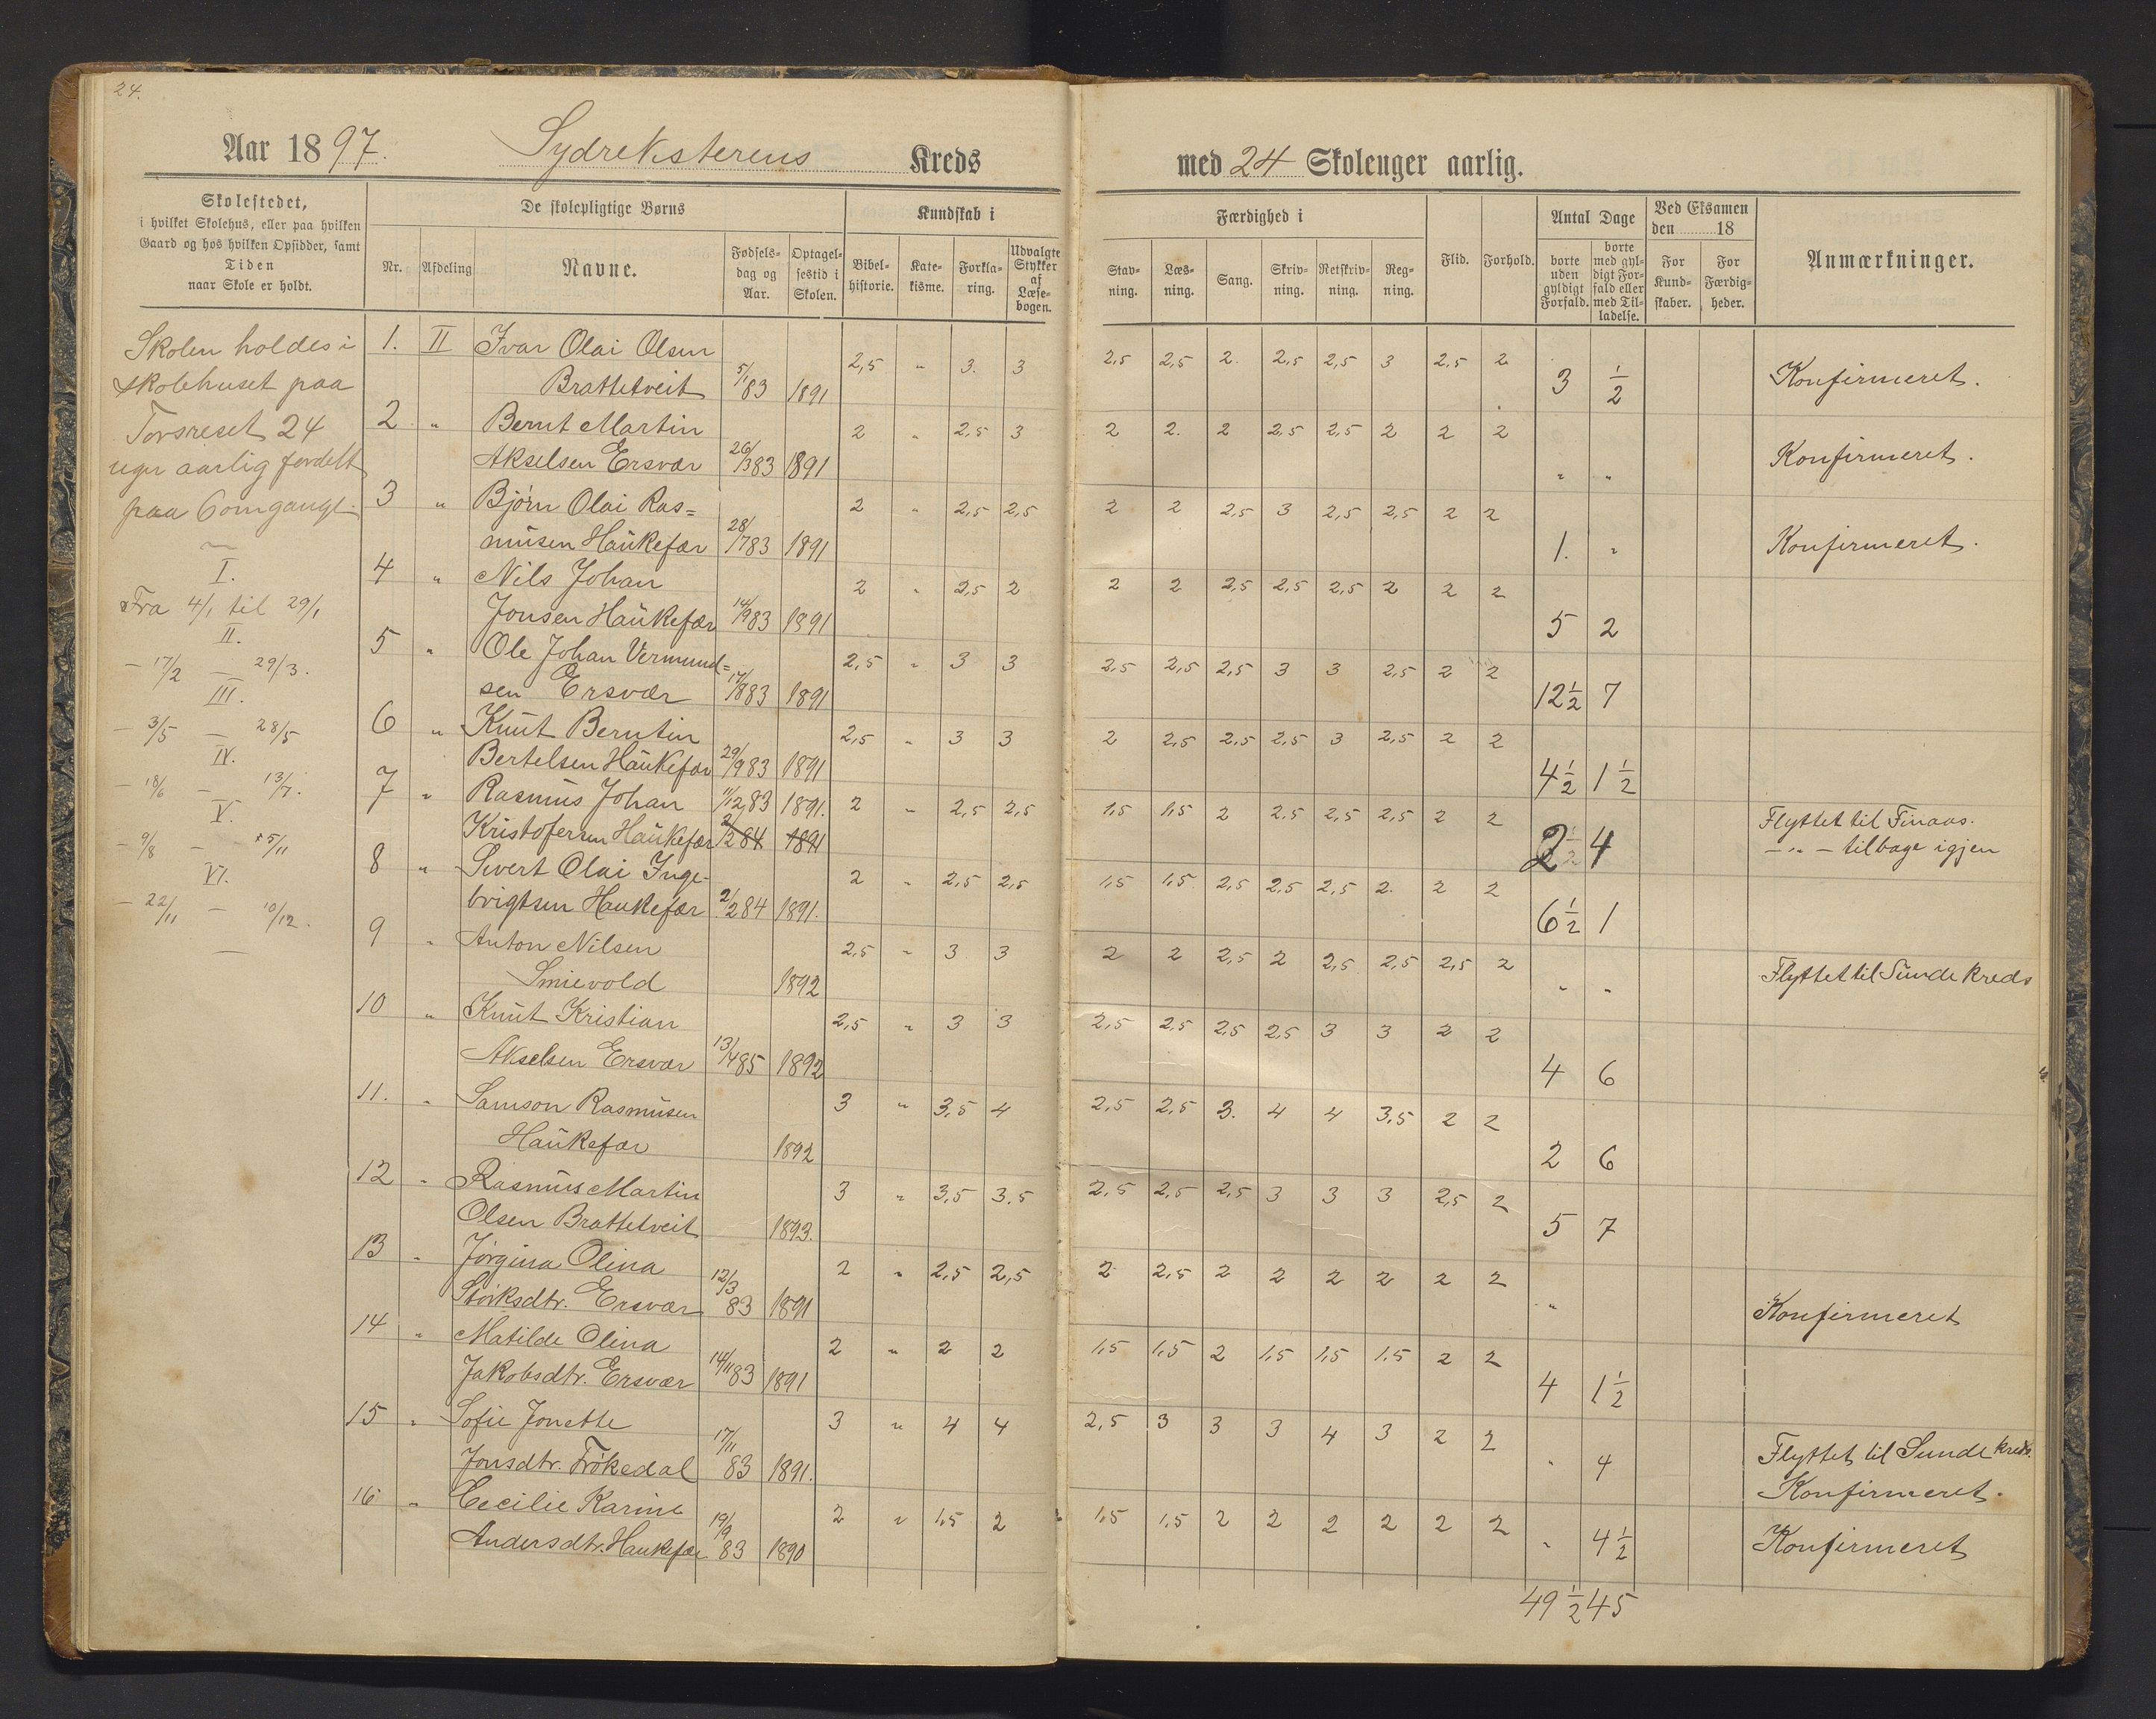 24.
Aar 1897. Sydreksterens Kreds
med 24 Skoleuger aarlig.
Skolestedet,
i hvilket Skolehus, eller paa hvilken
Gaard og hos hvilken Opsidder, samt
Tiden
naar Skole er holdt.
De skolepligtige Børns
Nr. Afdeling Navne. Fødselsdag og Aar. Optagelsestid i Skolen.
Kundskab i
Bibelhistorie. Katekisme. Forklaring. Udvalgte Stykker af Læsebogen.
Færdighed i
Stavning. Læsning. Sang. Skrivning. Retskrivning. Regning.
Flid. Forhold.
Antal Dage
borte uden gyldigt Forfald. borte med gyldigt Forfald eller med Tilladelse.
Ved Eksamen
den 18
For Kundskaber. For Færdigheder.
Anmærkninger.
Skolen holdes i
skolehuset paa
Torsreset 24
uger aarlig fordelt
paa 6 omgange.
I.
Fra 4/1 til 29/1
II.
— 17/2 — 29/3.
III.
— 3/5 — 28/5
IV.
— 18/6 — 13/7.
V.
— 9/8 — 5/11
VI.
— 22/11 — 10/12.
1. II Ivar Olai Olsen
Brattetveit 5/1 83 1891 2,5 " 3. 3 2,5 2,5 2. 2,5 2,5 3 2,5 2 3 1/2 Konfirmeret.
2 " Bernt Martin
Akselsen Ersvær 26/3 83 1891 2 " 2,5 3 2 2. 2 2,5 2,5 2 2 2 " " Konfirmeret.
3 " Bjørn Olai Ras=
musen Haukefær 28/7 83 1891 2 " 2,5 2,5 2 2 2,5 3 2,5 2,5 2 2 1. " Konfirmeret.
4 " Nils Johan
Jonsen Haukefær 14/9 83 1891 2 " 2,5 2 2 2 2,5 2,5 2,5 2 2 2 5 2
5 " Ole Johan Vermund=
sen Ersvær 17/8 83 1891 2,5 " 3 3 2,5 2,5 2,5 3 3 2,5 2 2 12 1/2 7
6 " Knut Berntin
Bertelsen Haukefær 29/9 83 1891 2,5 " 3 3 2 2,5 2,5 2,5 3 2,5 2 2 4 1/2 1 1/2
7 " Rasmus Johan 11/12 83 1891. 2 " 2,5 2,5 1,5 1,5 2 2,5 2,5 2,5 2 2 2 4 Flyttet til Finaas.
Kristofersen Haukefær 2/12 84 1891 — " — tilbage igjen
8 " Sivert Olai Inge-
brigtsen Haukefær 2/2 84 1891. 2 " 2,5 2,5 1,5 1,5 2,5 2,5 2,5 2. 2 2 6 1/2 1
9 " Anton Nilsen
Smievold 1892 2,5 " 3 3 2 2 2,5 2 2,5 2,5 2,5 2 " " Flyttet til Sunde kreds
10 " Knut Kristian
Akselsen Ersvær 13/4 85 1892 2,5 " 3 3 2,5 2,5 2,5 2,5 3 3 2 2 4 6
11. " Samson Rasmusen
Haukefær 1892 3 " 3,5 4 2,5 2,5 3. 4 4 3,5 2 2 2 6
12 " Rasmus Martin
Olsen Brattetveit 1893. 3 " 3,5 3,5 2,5 2,5 2,5 3 3 3 2,5 2 5 7
13 " Jørgina Olina
Størksdtr. Ersvær 12/3 83 1891 2 " 2,5 2,5 2 2,5 2 2 2 2 2 2 " Konfirmeret
14 " Matilde Olina
Jakobsdtr. Ersvær 14/11 83 1891 2 " 2 2 1,5 1,5 2 1,5 1,5 1,5 2 2 4 1 1/2
15 " Sofie Jonette
Jonsdtr. Frøkedal 17/11 83 1891. 3 " 4 4 2,5 3 3 3 4 3 2 2 " 4 Flyttet til Sunde kreds.
Konfirmeret.
16 " Cecilie Karine
Andersdtr. Haukefær 19/9 83 1890 2 " 1,5 2 1,5 1,5 2 2 2 2 2 2 " 4 1/2 Konfirmeret
49 1/2 45